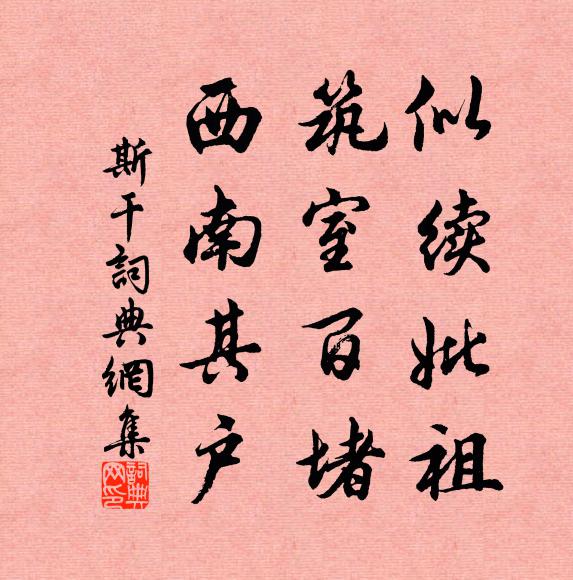 似续妣祖
筑室百堵
西南其户
斯干詞典網集
詞典網印